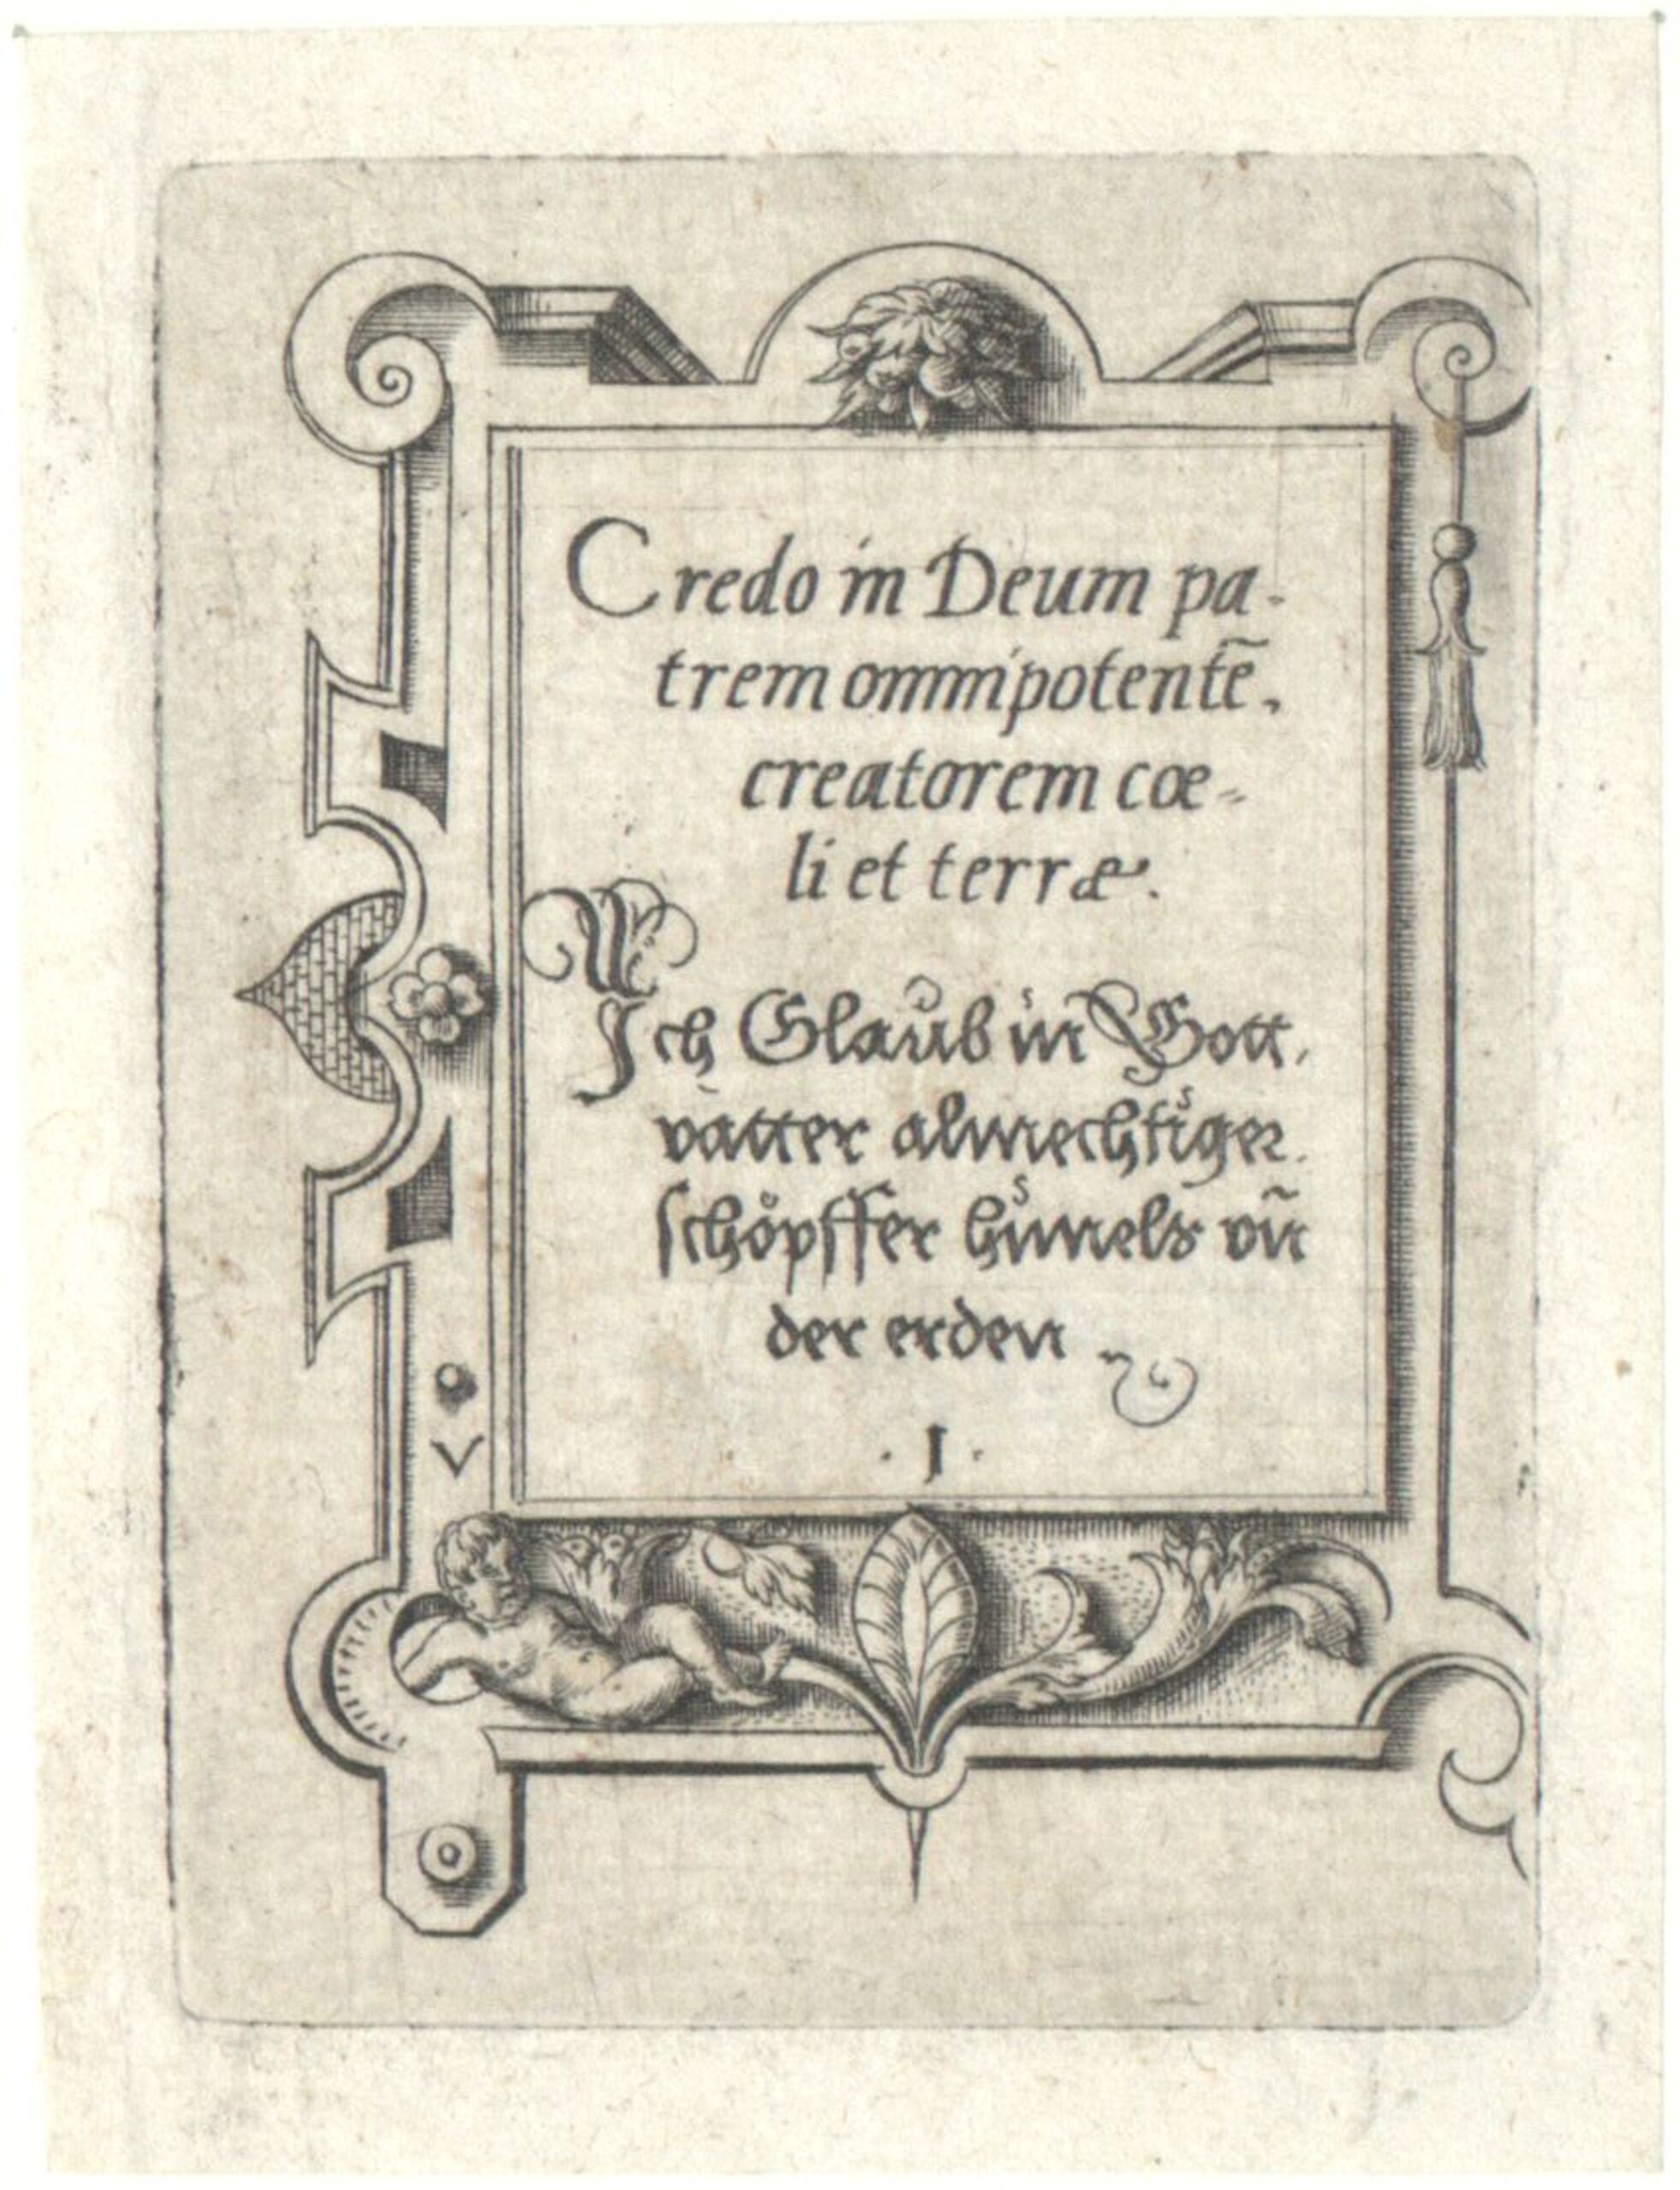 Credo in Deum pa-
trem omnipotentē,
creatorem cœ-
li et terræ.
Ich Glaub in Gott,
vatter almechtiger.
schöpffer himels vñ
der erden
. I .